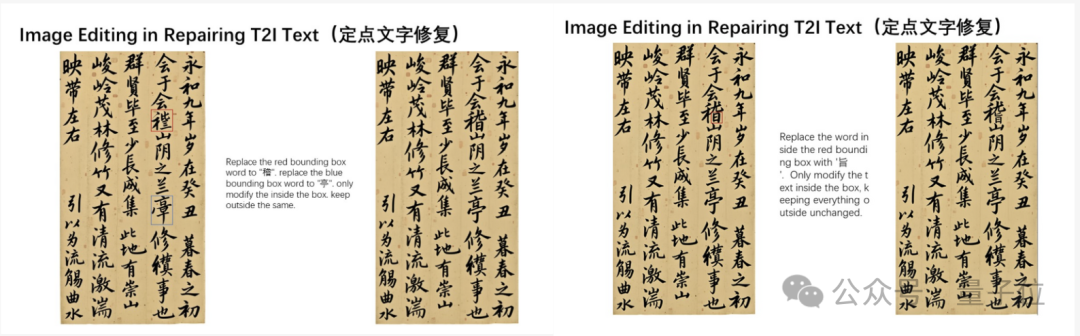 Image Editing in Repairing T2I Text（定点文字修复）
永和九年岁在癸丑 暮春之初
会于会山阴之兰修事也
群贤毕至少長咸集 此地有崇山
峻岭茂林修竹又有清流激湍
映带左右 引以为流觞曲水
Replace the red bounding box
word to "稽". replace the blue
bounding box word to "亭". only
modify the inside the box. keep
outside the same.
永和九年岁在癸丑 暮春之初
会于会稽山阴之兰亭修事也
群贤毕至少長咸集 此地有崇山
峻岭茂林修竹又有清流激湍
映带左右 引以为流觞曲水
Image Editing in Repairing T2I Text（定点文字修复）
永和九年岁在癸丑 暮春之初
会于会山阴之兰亭修事也
群贤毕至少長咸集 此地有崇山
峻岭茂林修竹又有清流激湍
映带左右 引以为流觞曲水
Replace the word in
side the red boundi
ng box with '旨
'. Only modify the t
ext inside the box, k
eeping everything o
utside unchanged.
永和九年岁在癸丑 暮春之初
会于会稽山阴之兰亭修事也
群贤毕至少長咸集 此地有崇山
峻岭茂林修竹又有清流激湍
映带左右 引以为流觞曲水
公众号 量子位